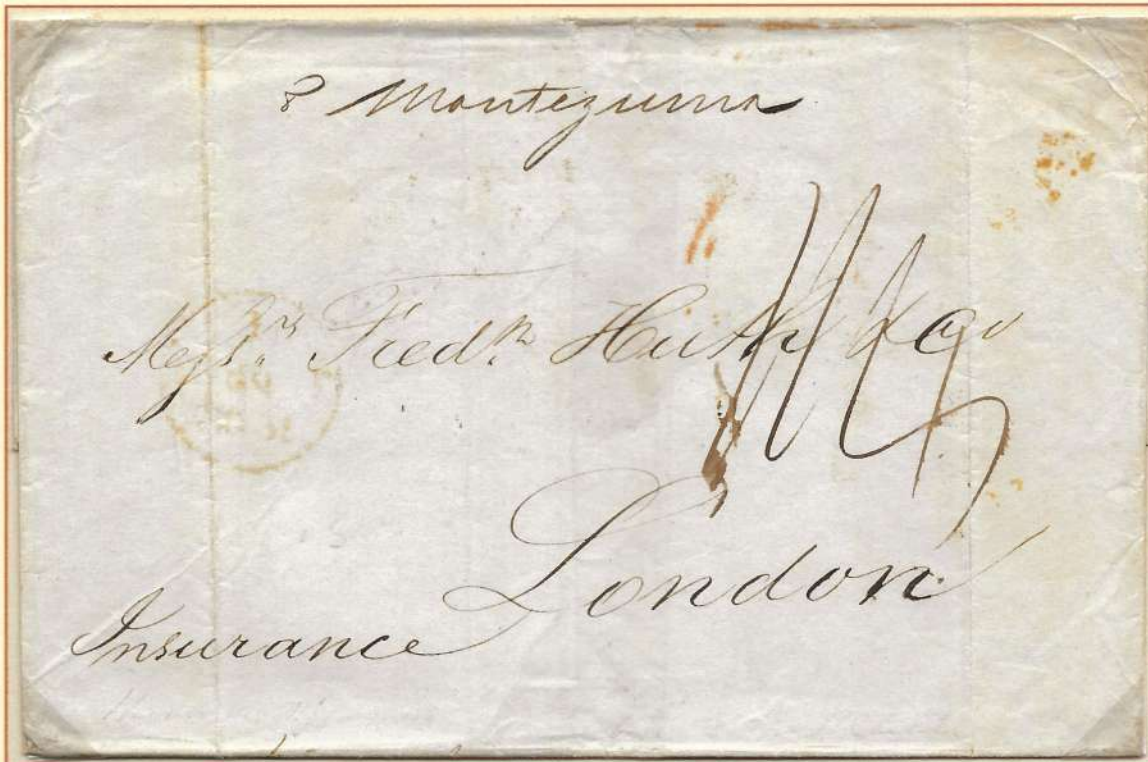 ⅌ Montezuma
Messrs. Fredk. Huth & Co
London
Insurance